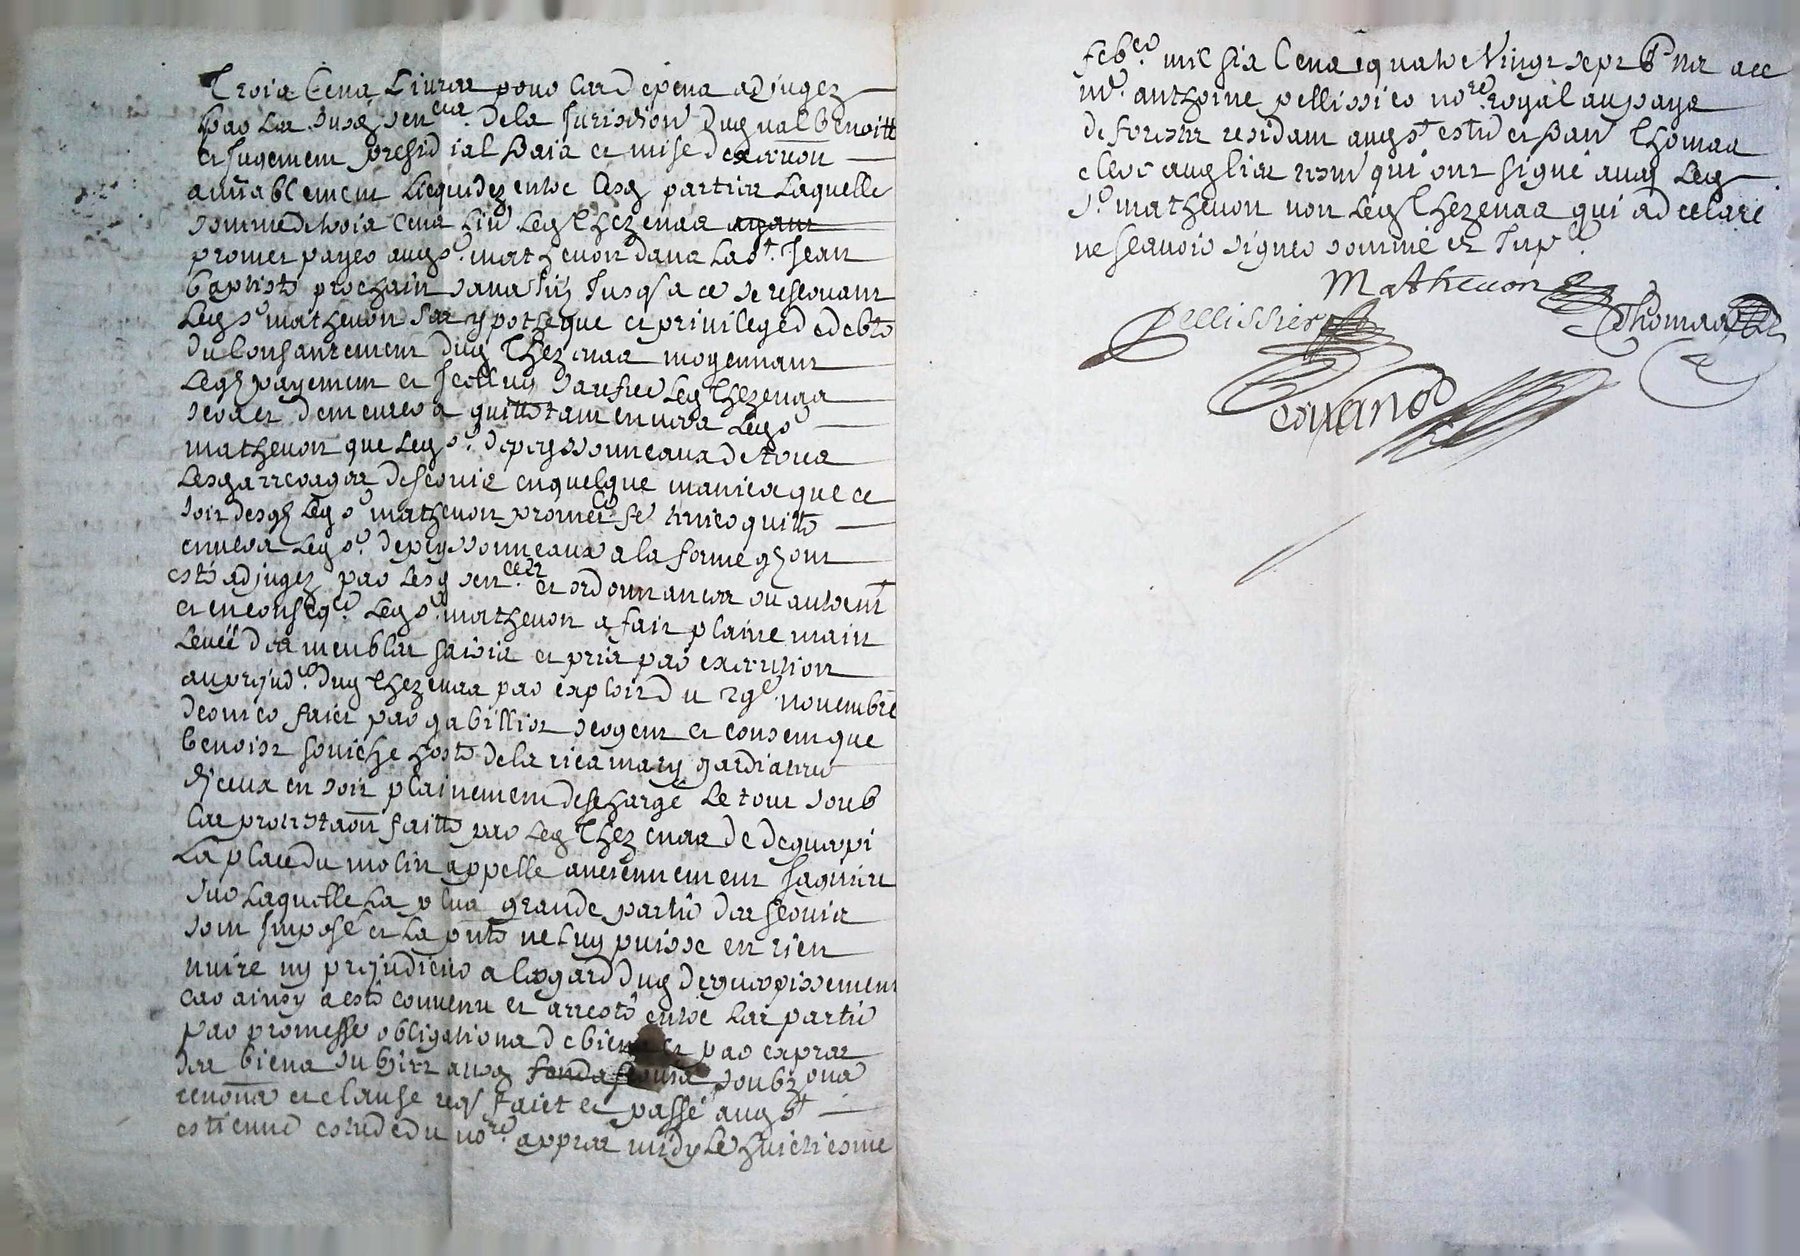 Trois Cens Livres pour les despens adjugez
par les susd sen.ces de la Jurisdion dud val benoitt
et jugement presidial Baia et mise dexecuon
amiablement Liequidez entre lesd parties Laquelle
somme de trois cens Liv Led Thezenas ayant
promet payer aud sr. mathevon dans La st. Jean
baptiste prochain sans Jusqs a ce se reservant
Led sr mathevon ses ypotheque et privilege de debte
du consantement dud Thezenas moyennant
Led payement et Jcelluy Led Thezenas
sera et demeurera quitte tant envers Led sr
mathevon que Led sr. depeyssonneaux de tous
Lesd arrerages de servis en quelque maniere que ce
soit desqls Led sr mathevon promet Le tenir quitte
envers Led sr. depeyssonneaux a la forme ql ont
esté adjugez par Lesd sen.ces et ordonnances ou autremt
et en conseqce. Led sr mathevon a fait plaine main
Levée des meubles saisis et pris par execution
au prejudce. dud Thezenas par exploit du 29e novembre
dernier faict par gabillier sergent et consent que
benoist souiche hoste de la ricamary gardiateur
diceux en soit plainement deschargé Le tout soub
Les protestaon faitte par Led Thezenas de deguerpi
La place du molin appelle anciennement Jaquin
sur Laquelle La plus grande partie des servis
sont Jmposé et La pnte ne Luy puisse en rien
nuire ny prejudicier a lesgard dud deguerpissement
car ainsy a esté convenu et arresté entre Les parties
par promesse obligations de biens et par expres
des biens subiet ausd fonds servis soubz ons
renons et clause reqs faict et passé aud st
estienne estude du nore. appres midy Le huictiesme
feber. mil six Cens quatre Vingt sept pnt a ce
mr. anthoine pellissier nore. royal au pays
de forestz residant aud st estne et Jean Thomas
clerc aud lieu qui ont signé avec Led
sr mathevon non Led Thezenas qui a declaré
ne scavoir signer sommé et Inpr.
Mathevon
Pellissier
Thomas